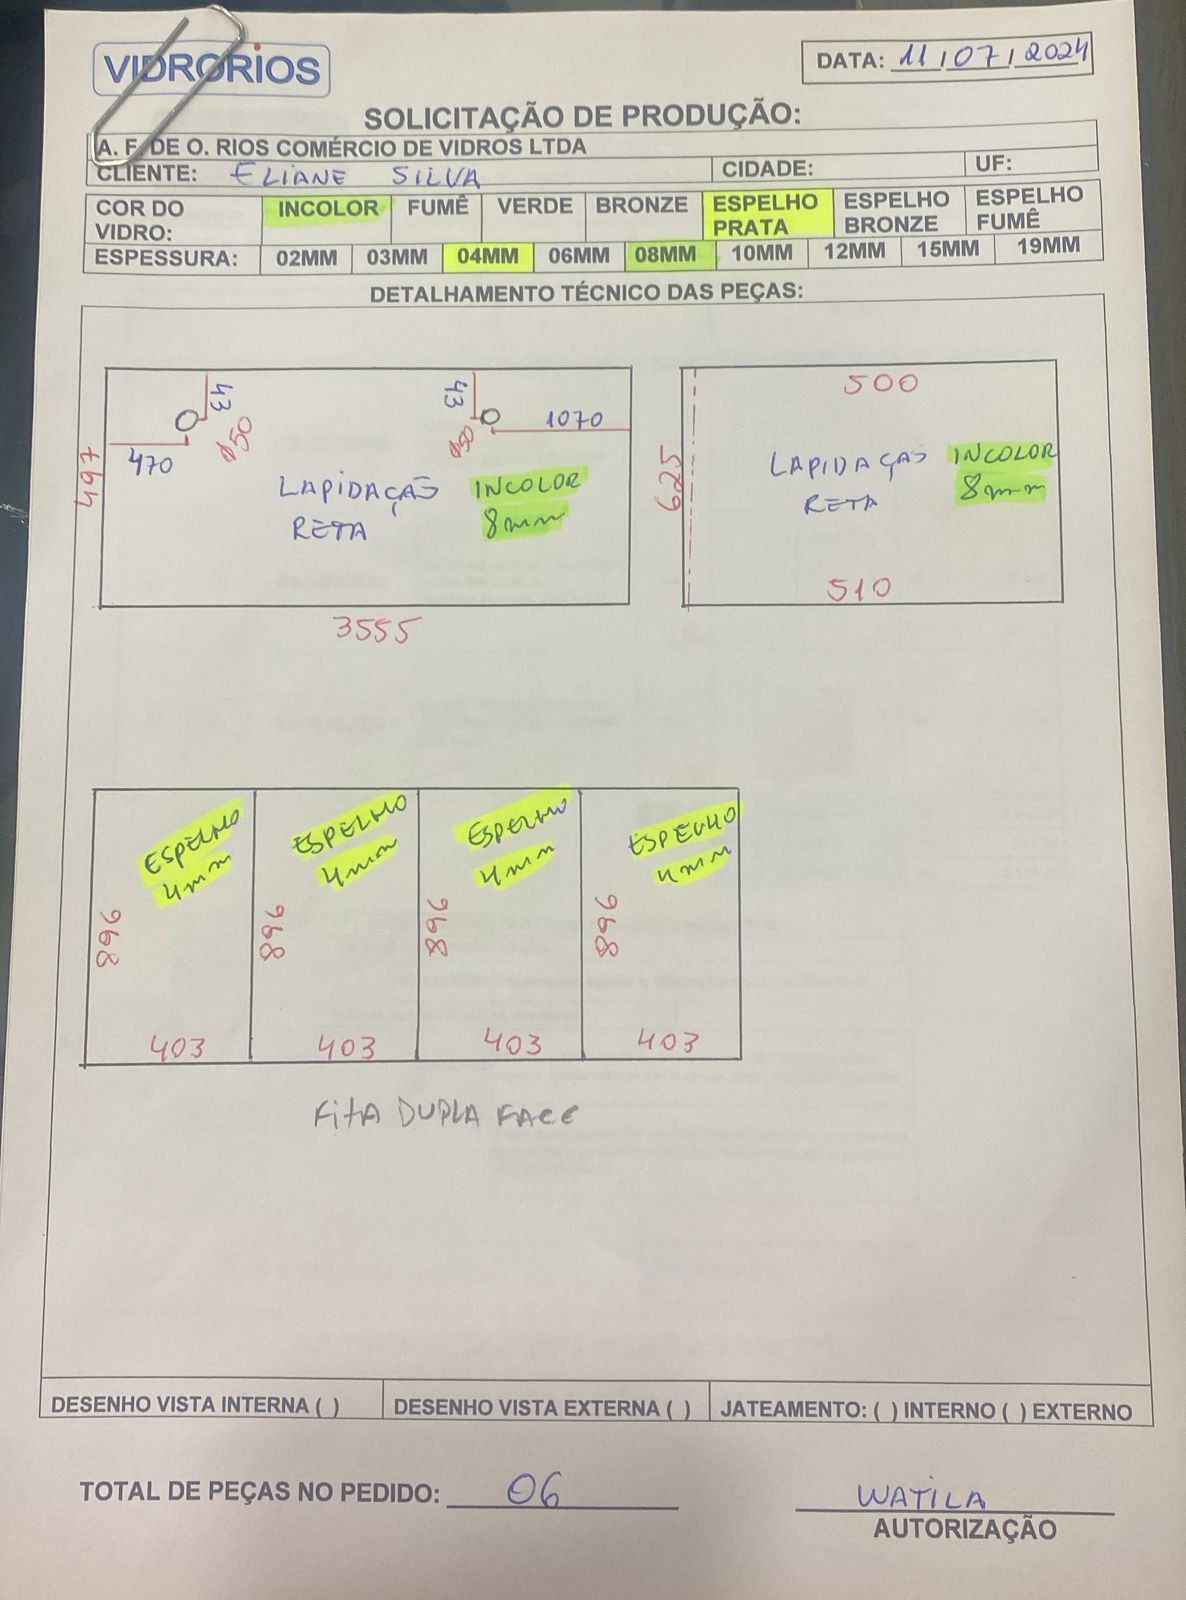 VIDRORIOS
DATA: 11/07/2024
SOLICITAÇÃO DE PRODUÇÃO:
A. F. DE O. RIOS COMÉRCIO DE VIDROS LTDA
CLIENTE: ELIANE SILVA CIDADE: UF:
COR DO VIDRO: INCOLOR FUMÊ VERDE BRONZE ESPELHO PRATA ESPELHO BRONZE ESPELHO FUMÊ
ESPESSURA: 02MM 03MM 04MM 06MM 08MM 10MM 12MM 15MM 19MM
DETALHAMENTO TÉCNICO DAS PEÇAS:
43 43 500
ø50 ø50 1070
470
497 625
LAPIDAÇAÕ INCOLOR LAPIDAÇAÕ INCOLOR
RETA 8mm RETA 8mm
510
3555
ESPELHO ESPELHO ESPELHO ESPELHO
4mm 4mm 4mm 4mm
896 896 896 896
403 403 403 403
FitA DUPLA FACE
DESENHO VISTA INTERNA ( ) DESENHO VISTA EXTERNA ( ) JATEAMENTO: ( ) INTERNO ( ) EXTERNO
TOTAL DE PEÇAS NO PEDIDO: 06 WATILA
AUTORIZAÇÃO